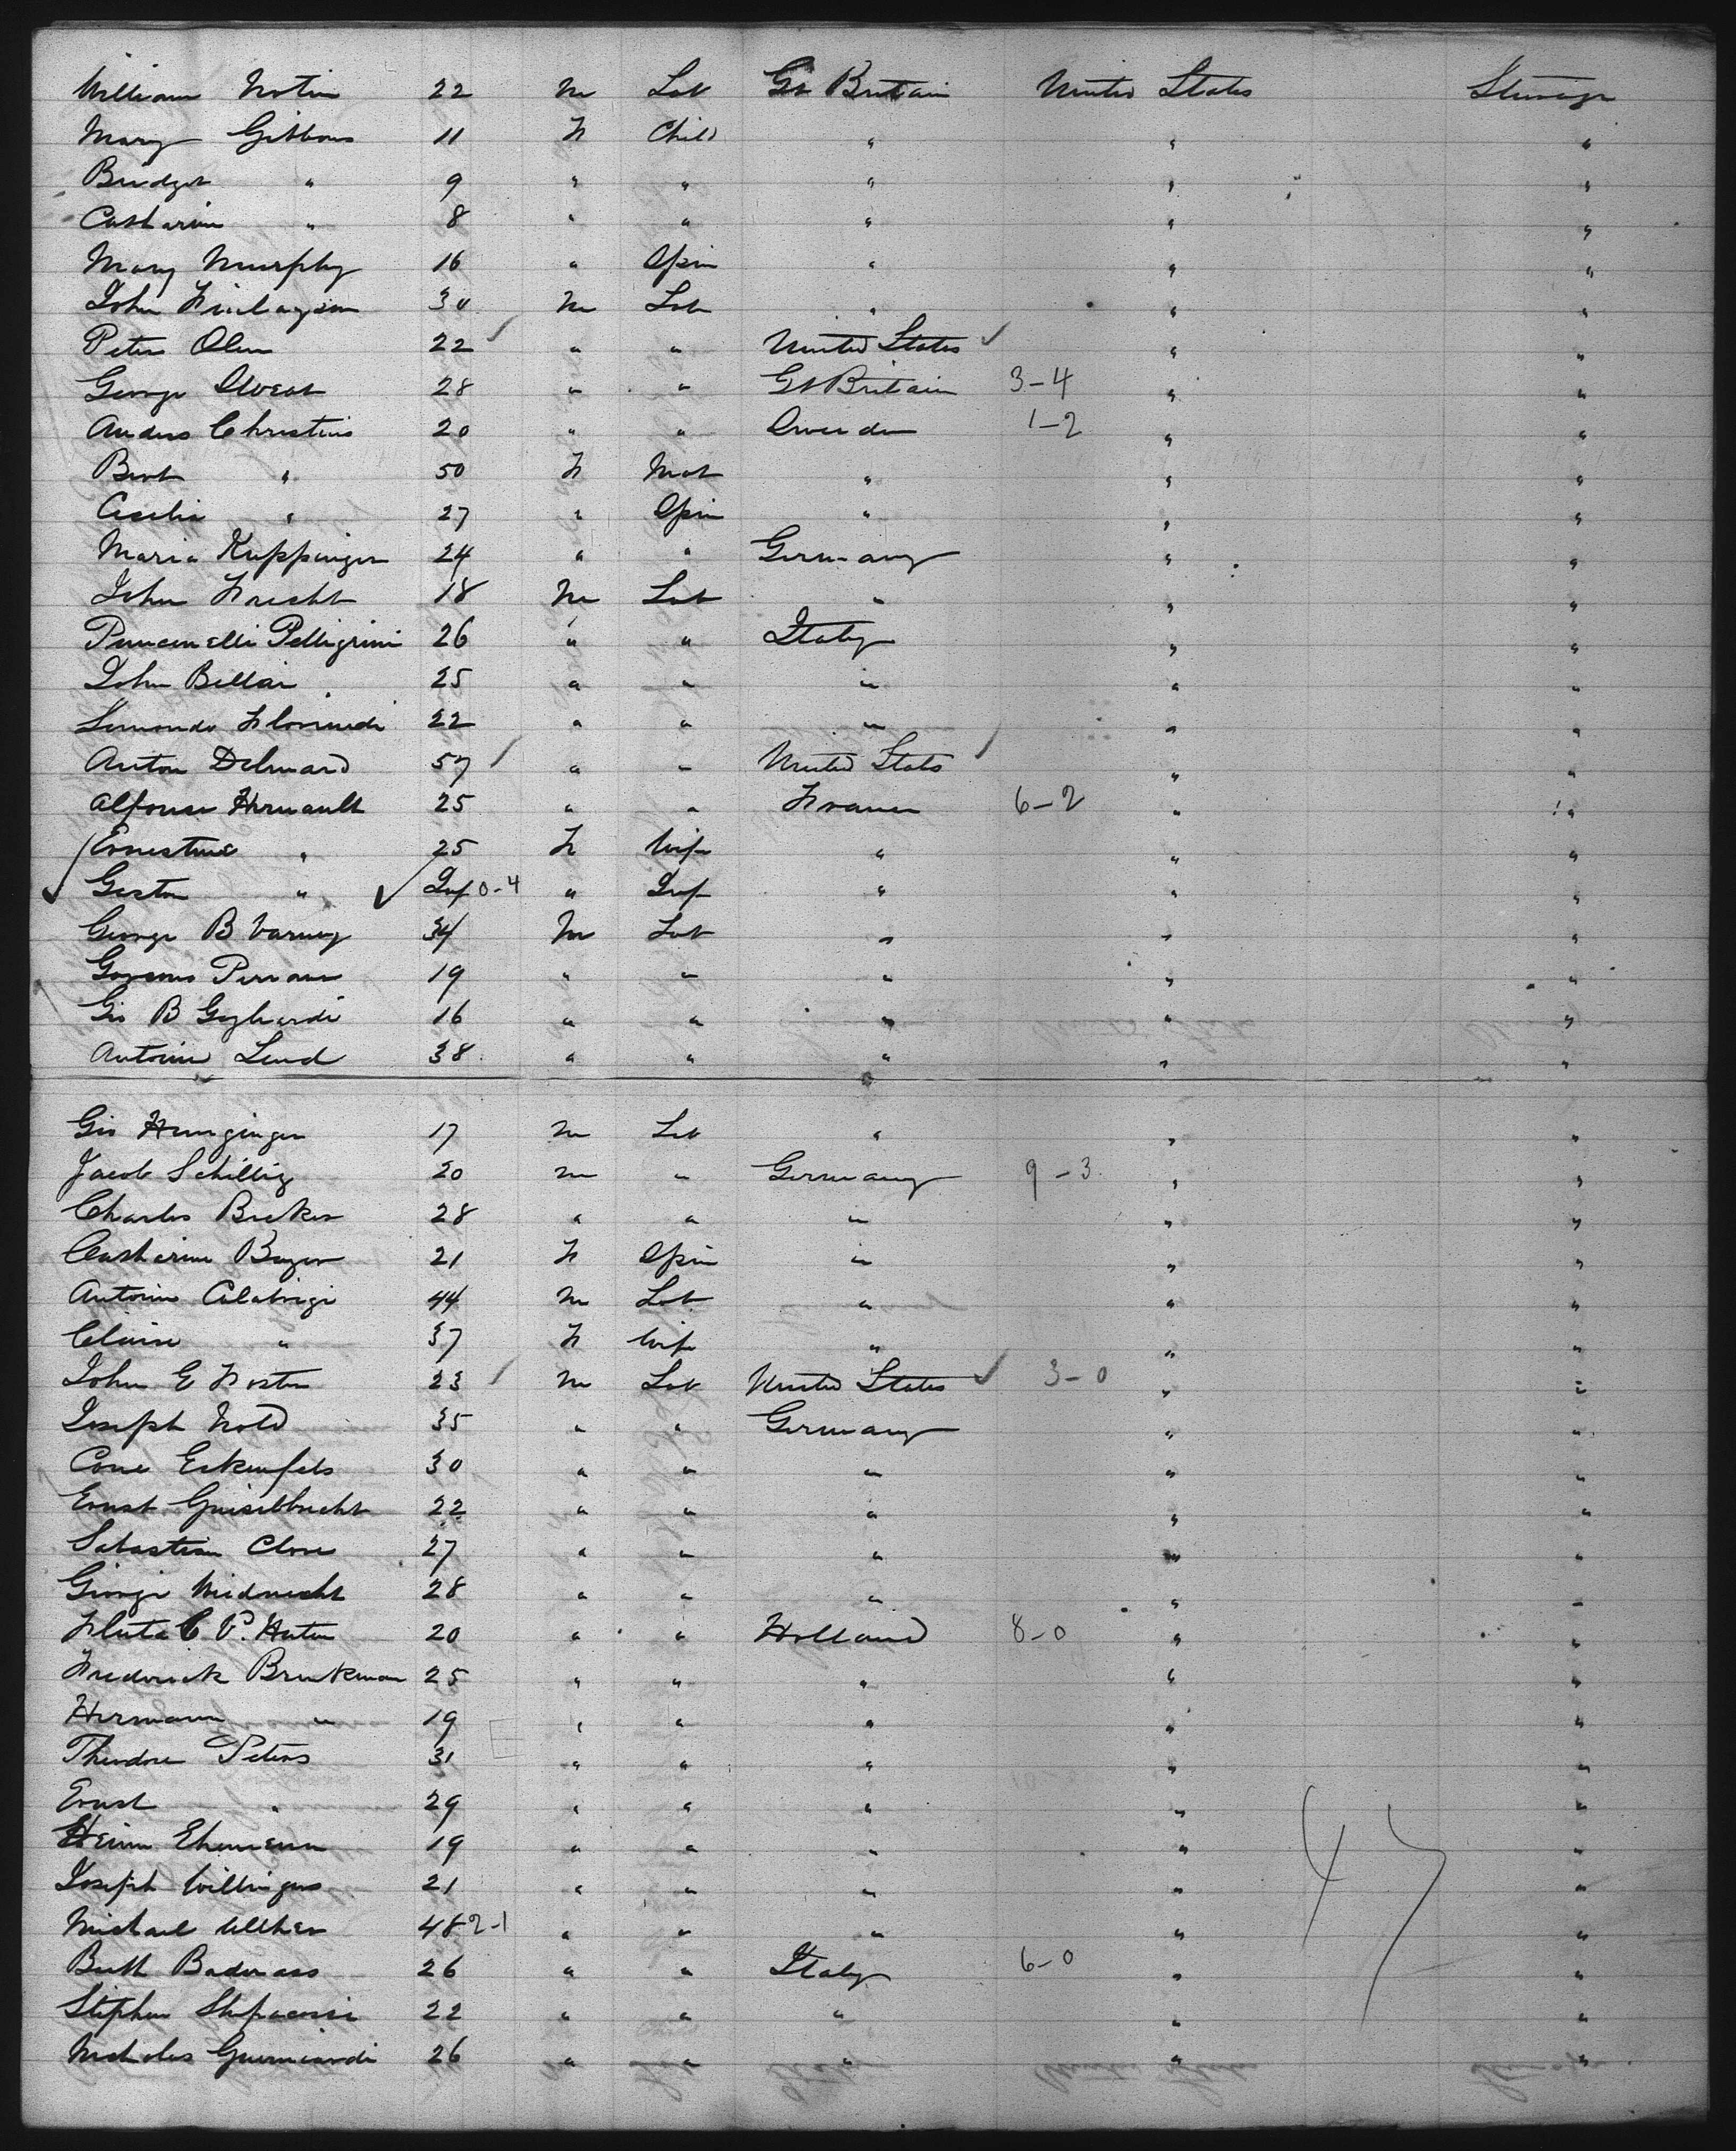 William Notin 22 m Lab Gt Britain United States Steerage
Mary Gibbons 11 F Child " " "
Bridget " 9 " " " " "
Catharine " 8 " " " " "
Mary Murphy 16 " Spin " " "
John Finlayson 30 m Lab " " "
Peter Olsen 22 ✓ " " United States ✓ " "
George 28 " " Gt Britain 3-4 " "
Anders Christius 20 " " Sweden 1-2 " "
Bert " 50 F Mat " " "
Cecilia " 27 " Spin " " "
Maria Kuppinger 24 " " Germany " "
John Frecht 18 m Lab " " "
Pelligrini 26 " " Italy " "
John Bellai 25 " " " " "
22 " " " " "
Anton Delmard 57 ✓ " " United States ✓ " "
Alfonse Heruault 25 " " France 6-2 " "
Ernestine " 25 F Wife " " "
Gaston " Inf 0-4 " Inf " " "
George B Varney 34 m Lab " " "
19 " " " " "
Gio B Gagliardi 16 " " " " "
Antoine 38 " " " " "
Gio 17 m Lab " " "
Jacob Schillig 20 m " Germany 9-3 " "
Charles Becker 28 " " " " "
Catharine Bayer 21 F Spin " " "
Antoine Calabrigi 44 m Lab " " "
Claire " 37 F Wife " " "
John E Foster 23 ✓ m Lab United States ✓ 3-0 " "
Joseph Nold 35 " " Germany " "
Eckenfels 30 " " " " "
Ernst Geiselbrecht 22 " " " " "
Sabastian Close 27 " " " " "
George 28 " " " " "
C V. 20 " " Holland 8-0 " "
Frederick Brinkman 25 " " " " "
Hermann " 19 " " " " "
Theodore Peters 31 " " " " "
Ernst " 29 " " " " "
Ehemann 19 " " " " "
Joseph Willingus 21 " " " " "
Michael 48 2-1 " " " " "
Badaras 26 " " Italy 6-0 " "
Stephen 22 " " " " "
Nicholas Guerniardi 26 " " " " "
47